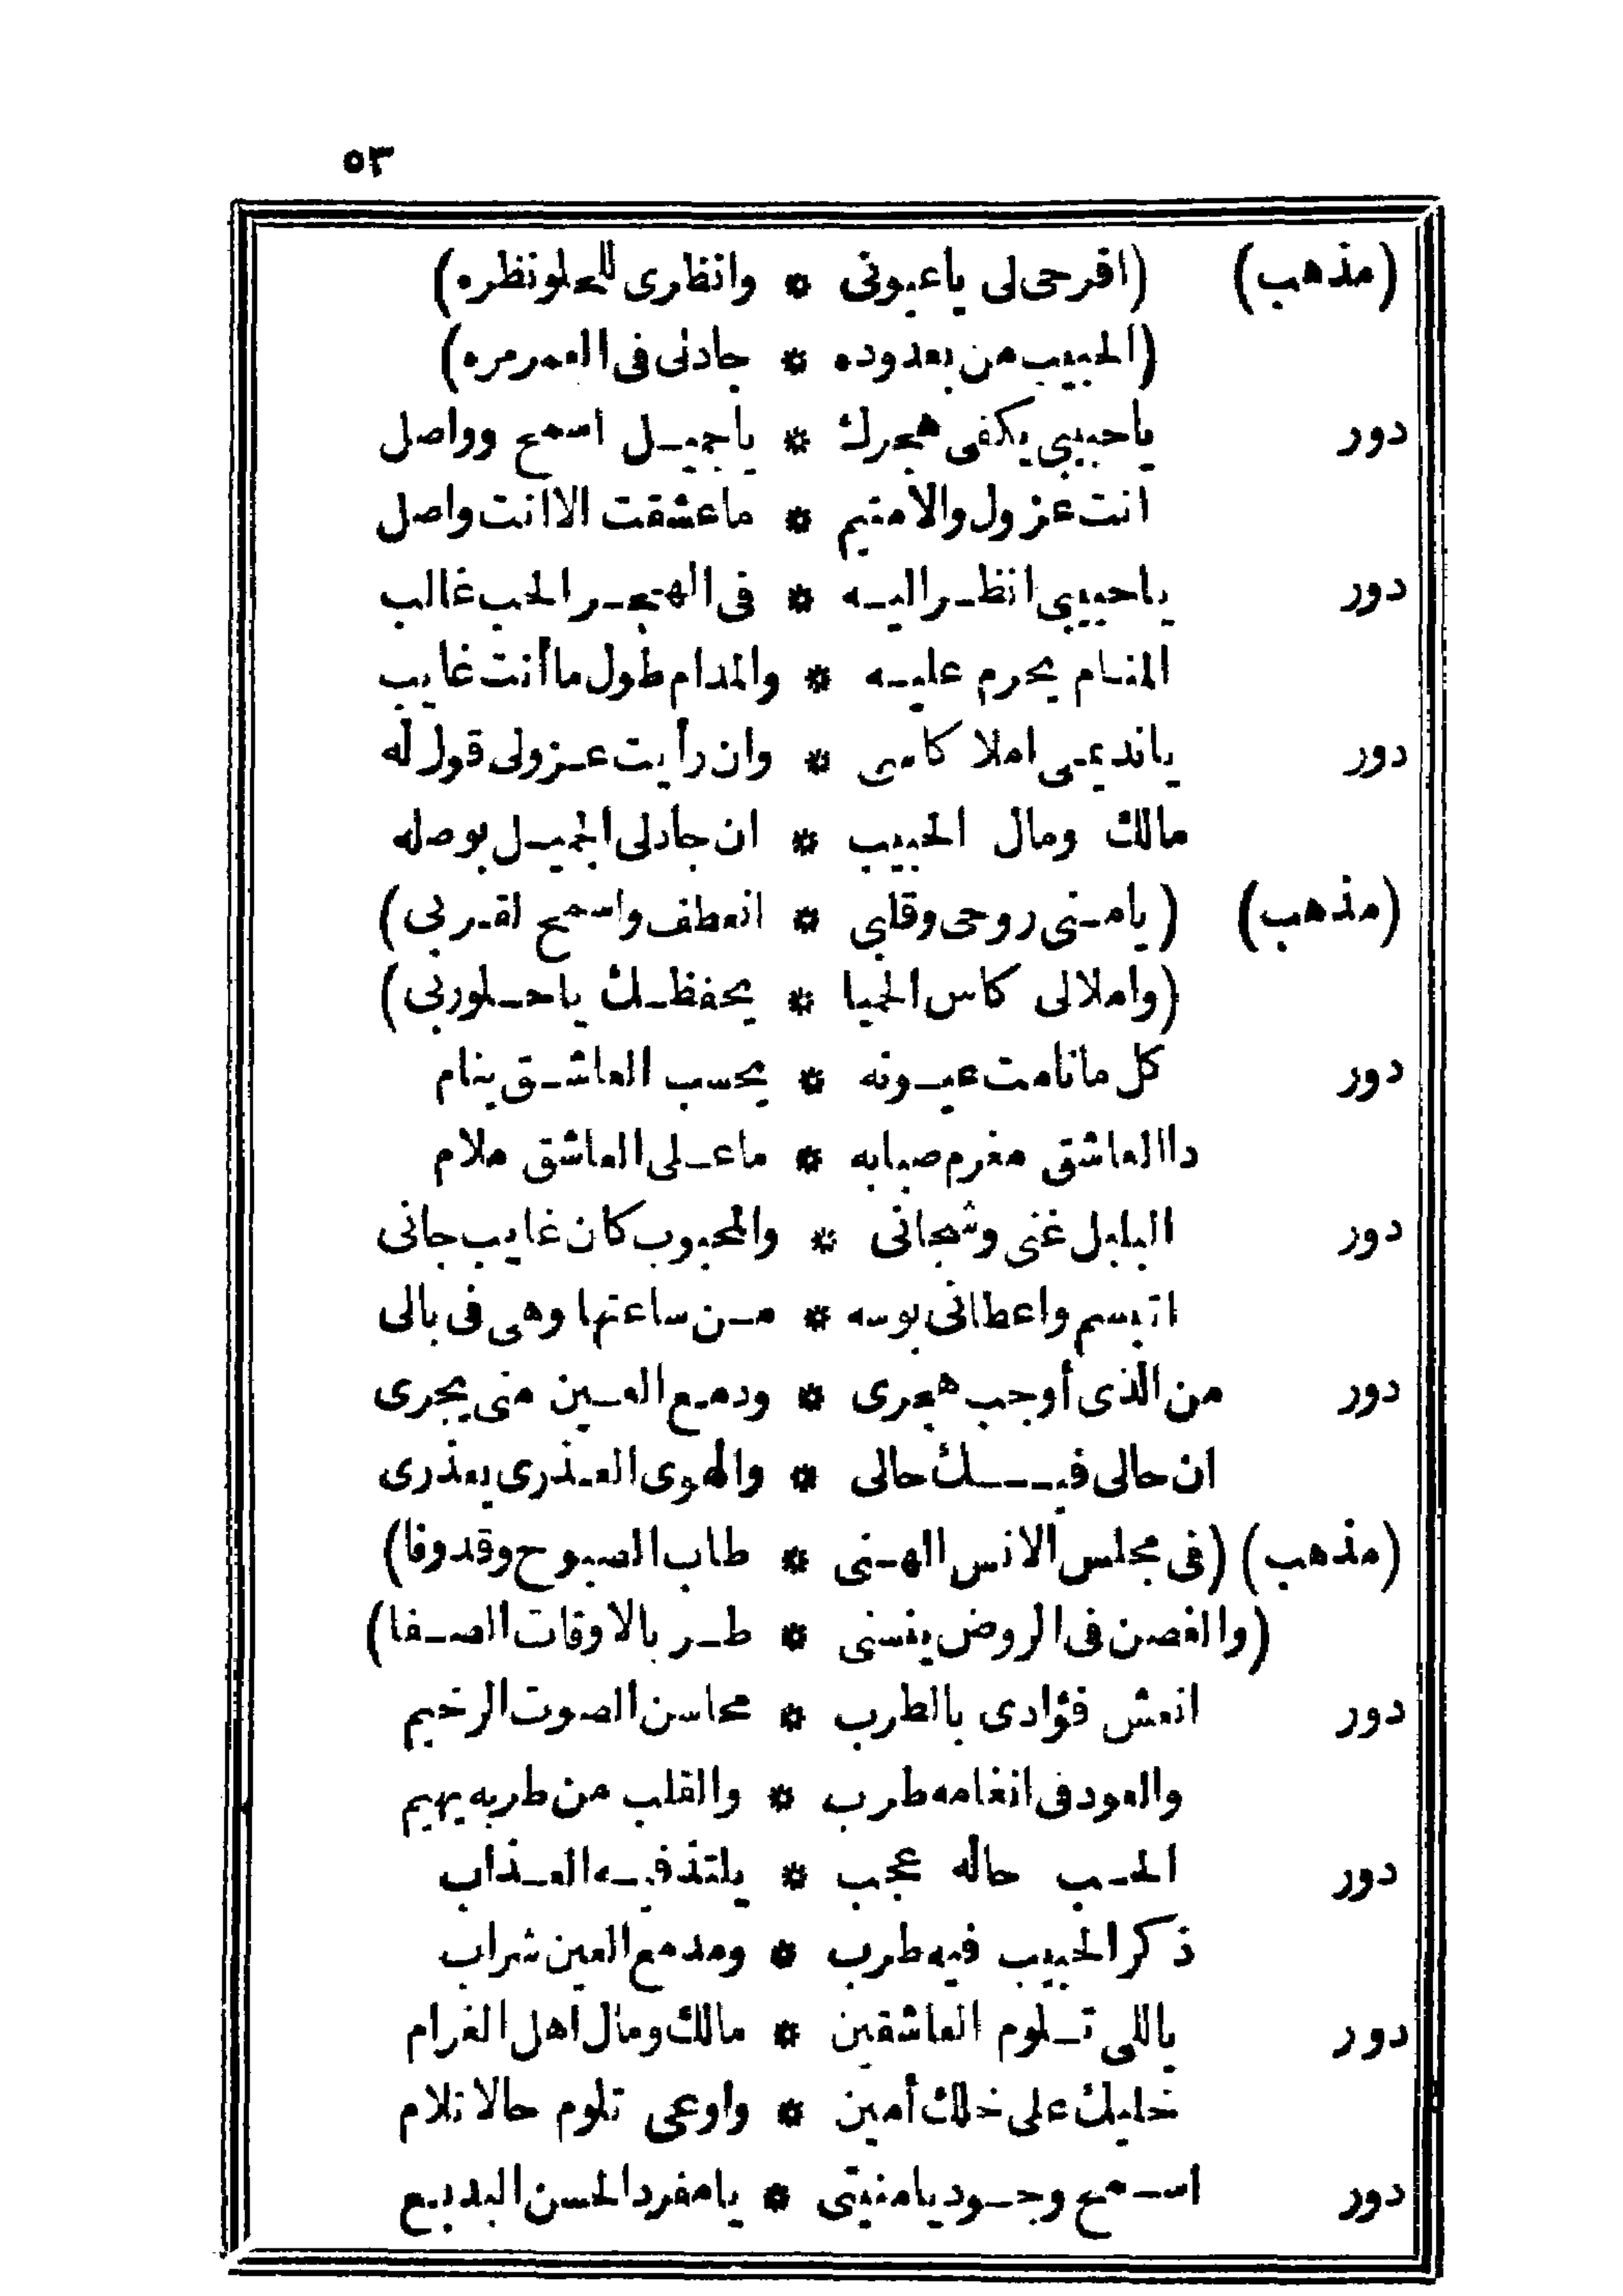 ٥٣
(مذهب) (افرحى لى ياعيونى * وانظرى للحلو نظره)
(الحبيب من بعد وده * جادلى فى العمر مره)
دور ياحبيبى يكفى هجرك * ياجميل اسمح وواصل
انت عزول والا متيم * ماعشقت الا انت واصل
دور ياحبيبى انظر اليه * فى الهجر الحب غالب
المنام يحرم عليه * والمدام طول ما أنت غايب
دور يانديمى املا كاسى * وان رأيت عزولى قول له
مالك ومال الحبيب * ان جادلى الجميل بوصله
(مذهب) (يامنى روحى وقلبى * انعطف واسمح لقربى)
(واملالى كاس الحيا * يحفظك ياحلو ربى)
دور كل مانامت عيونه * يحسب العاشق ينام
دا العاشق مغرم صبابه * ماعلى العاشق ملام
دور البلبل غنى وشجانى * والمحبوب كان غايب جانى
اتبسم واعطانى بوسه * من ساعتها وهى فى بالى
دور من الذى أوجب هجرى * ودمع العين منى يجرى
ان حالى فيك حالى * والهوى العذرى بعذرى
(مذهب) (فى مجلس الانس الهنى * طاب الصبوح وقد وفا)
(والغصن فى الروض ينسنى * طربا لاوقات الصفا)
دور انعش فؤادى بالطرب * محاسن الصوت الرخيم
والعود فى انغامه طرب * والقلب من طربه يهيم
دور الحب حاله عجب * يلتذ فيه العذاب
ذكر الحبيب فيه طرب * ومدمع العين شراب
دور ياللى تلوم العاشقين * مالك ومال اهل الغرام
خليك على خلك أمين * واوعى تلوم حالا تلام
دور اسمح وجود يامنيتى * يامفرد الحسن البديع